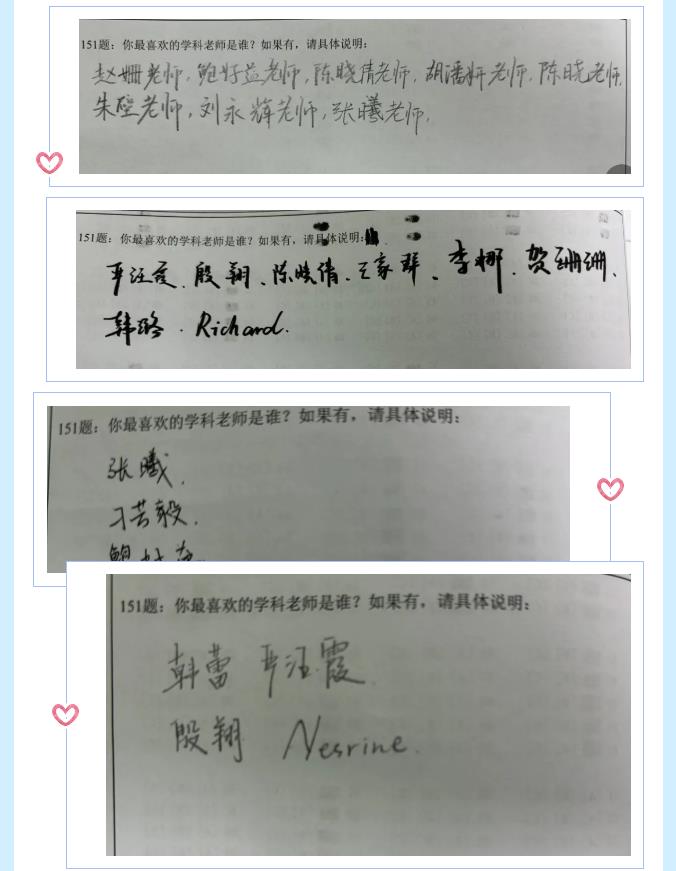 151题：你最喜欢的学科老师是谁？如果有，请具体说明：
赵姗老师，鲍好益老师，陈晓倩老师，胡潘妍老师，陈晓老师，
朱璧老师，刘永辉老师，张曦老师，
151题：你最喜欢的学科老师是谁？如果有，请具体说明：
平汪霞、殷翔、陈晓倩、王家群、李娜、贺珊珊、
韩璐、Richard.
151题：你最喜欢的学科老师是谁？如果有，请具体说明：
张曦，
刁芸毅，
鲍好益
151题：你最喜欢的学科老师是谁？如果有，请具体说明：
韩蕾 平汪霞
殷翔 Nesrine.